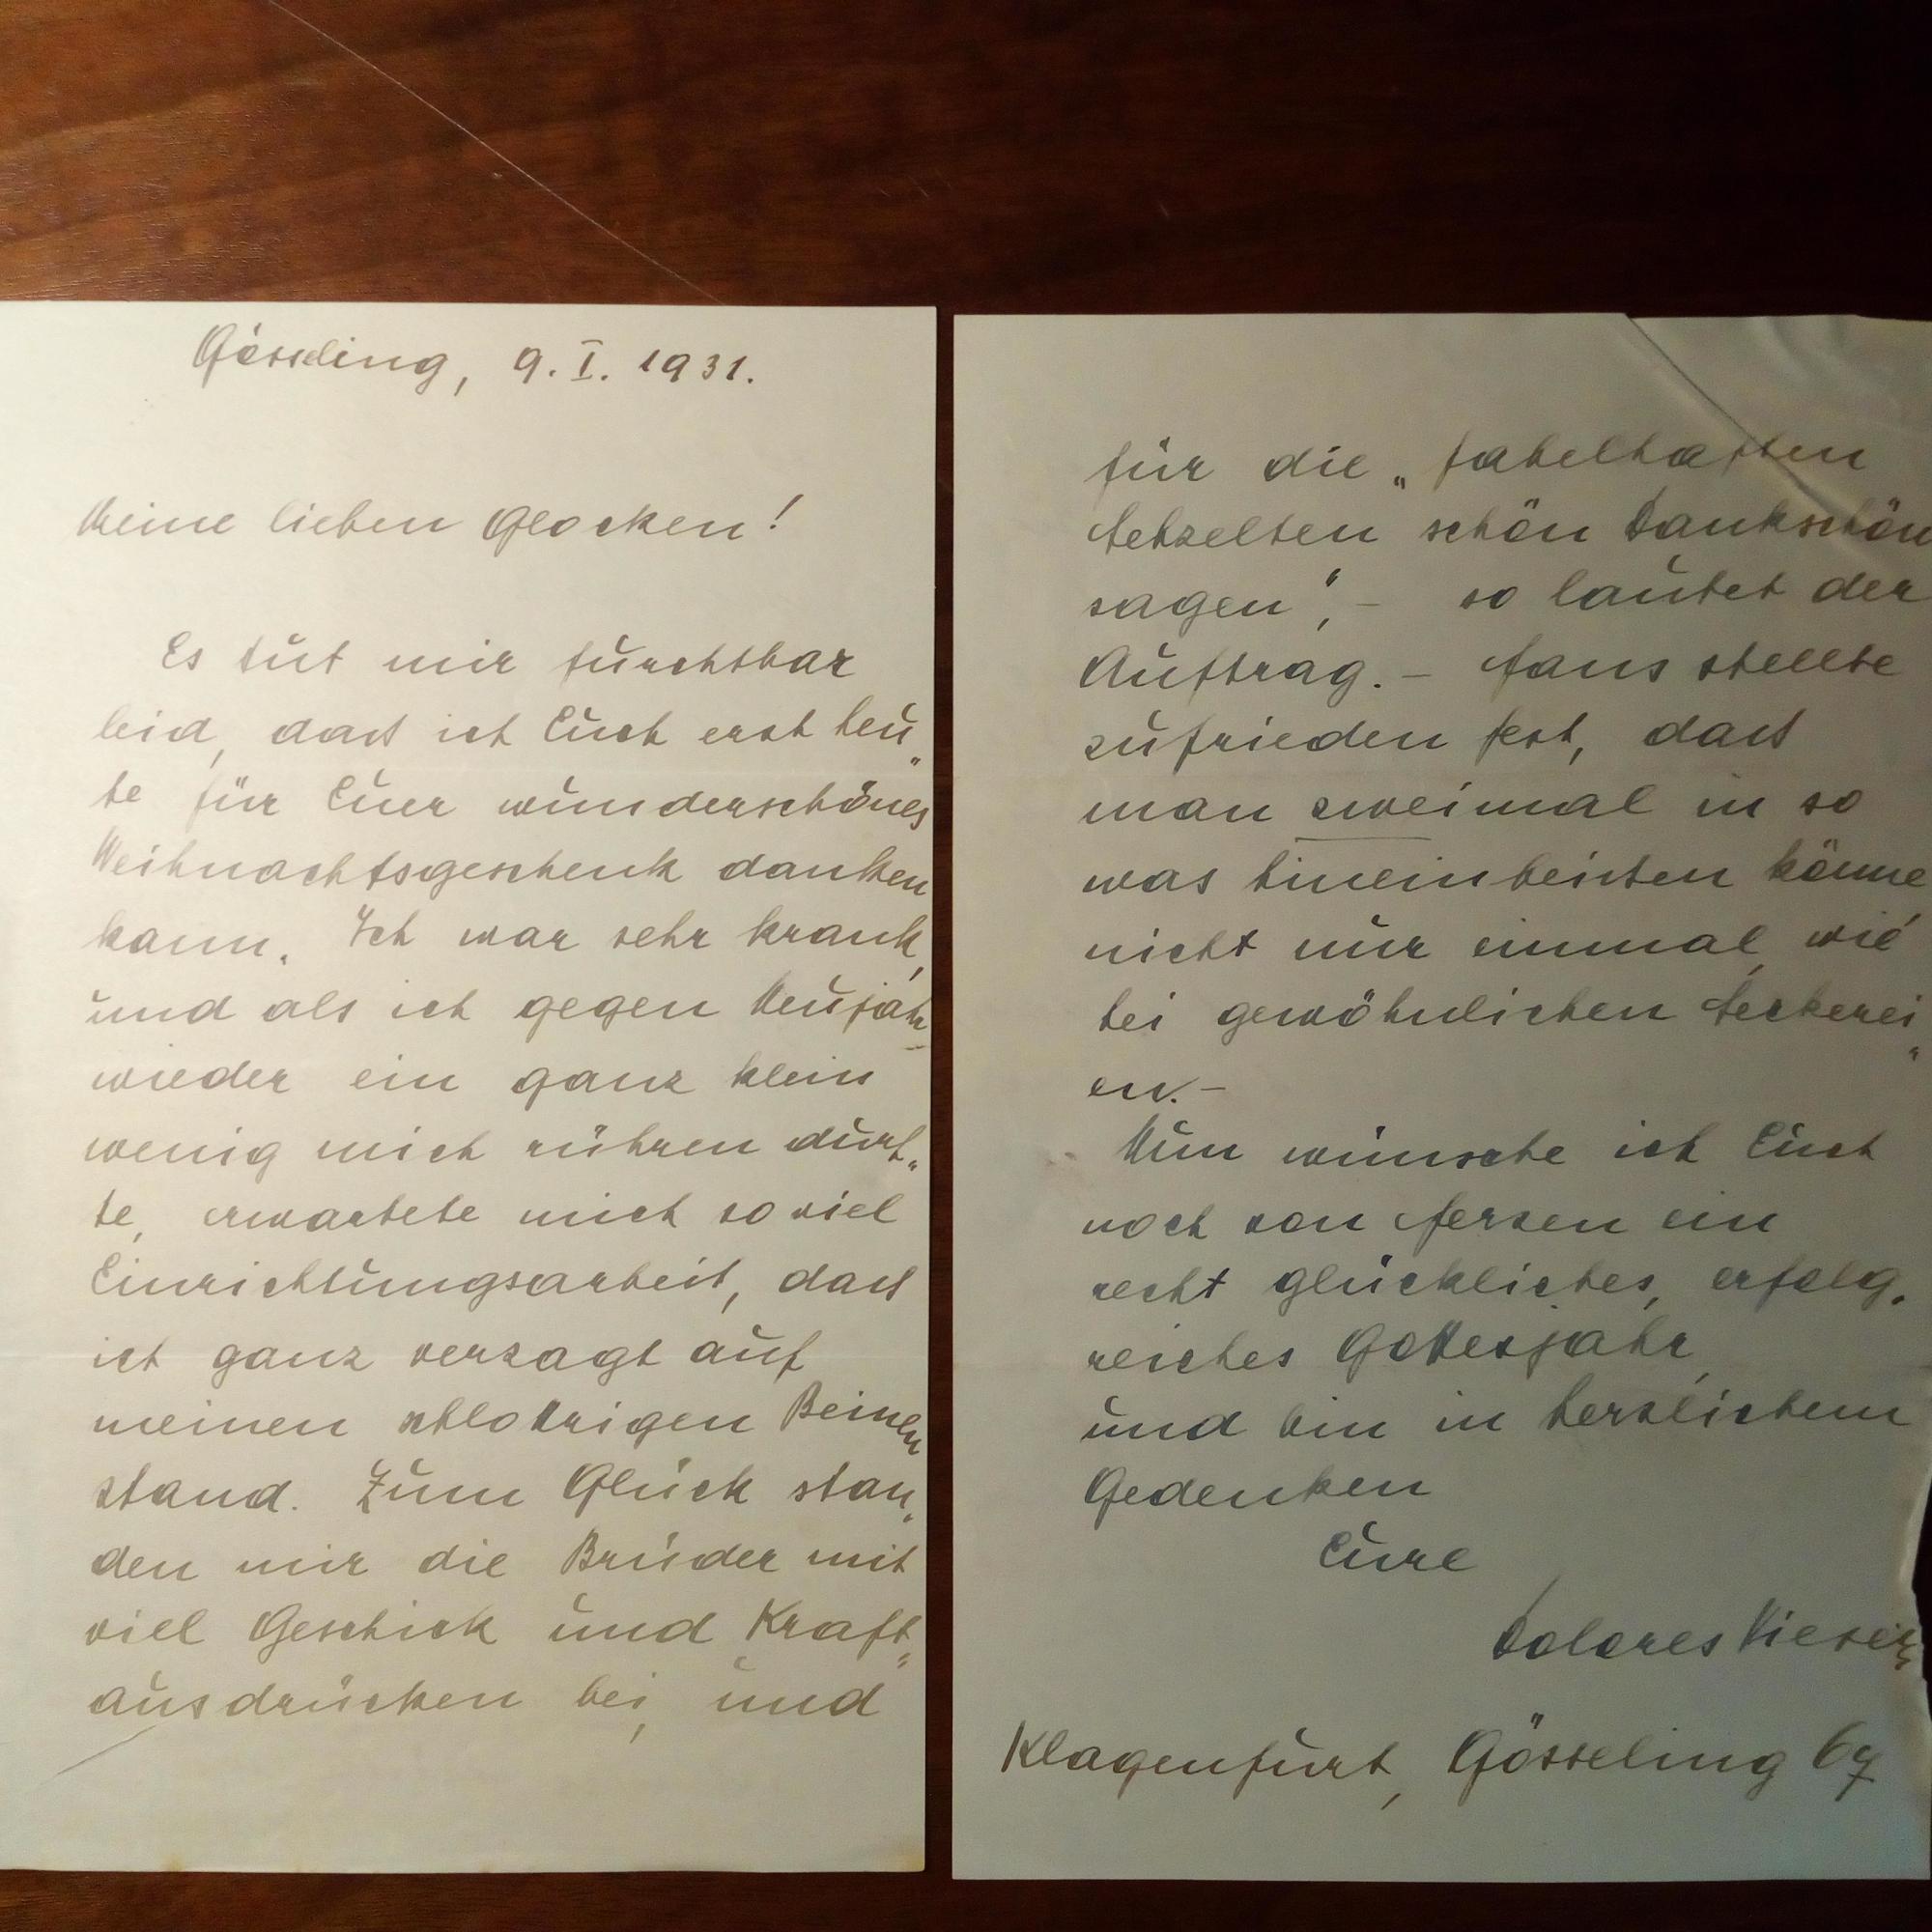 Gösseling, 9. I. 1931.
Meine lieben Glocken!
Es tut mir furchtbar
leid, dass ich Euch erst heu„
te für Euer wunderschönes
Weihnachtsgeschenk danken
kann. Ich war sehr krank,
und als ich gegen Neujahr
wieder ein ganz klein
wenig mich rühren durf„
te, erwartete mich so viel
Einrichtungsarbeit, dass
ich ganz verzagt auf
meinen schlottrigen Beinen
stand. Zum Glück stan„
den mir die Brüder mit
viel Geschick und Kraft„
ausdrücken bei, und
für die „fabelhaften
Lebzelten schön Dankschön
sagen“, – so lautet der
Auftrag. – Hans stellte
zufrieden fest, dass
man zweimal in so
was hineinbeissen könne
nicht nur einmal, wie
bei gewöhnlichen Leckerei„
en. –
Nun wünsche ich Euch
noch von Herzen ein
recht glückliches, erfolg„
reiches Gottesjahr,
und bin in herzlichem
Gedenken
Eure
Dolores Viesèr
Klagenfurt, Gösseling 67